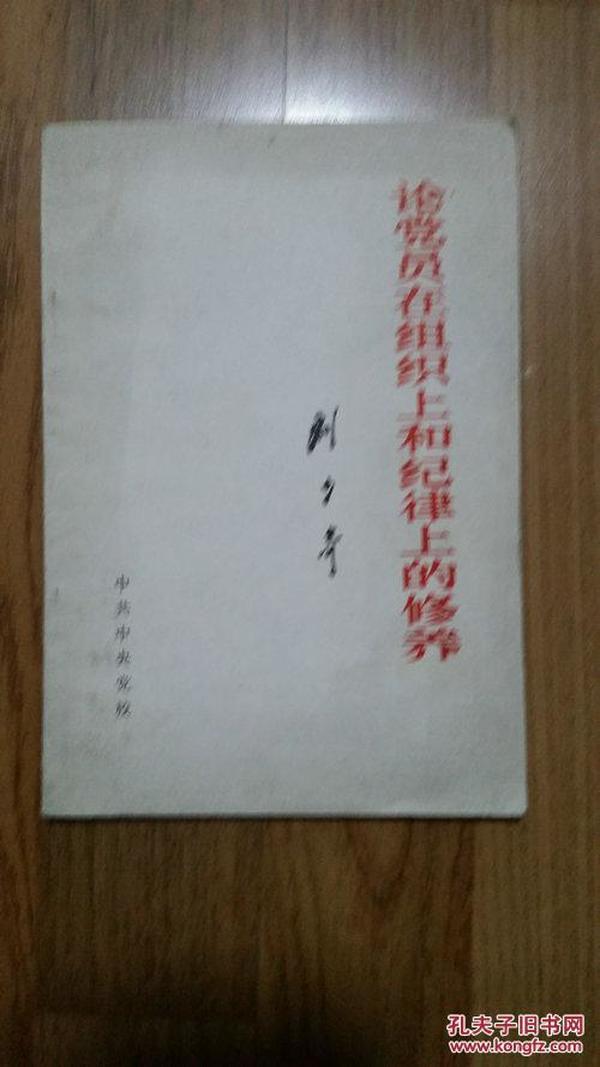 论党员在组织上和纪律上的修养
刘少奇
中共中央党校
孔夫子旧书网
www.kongfz.com